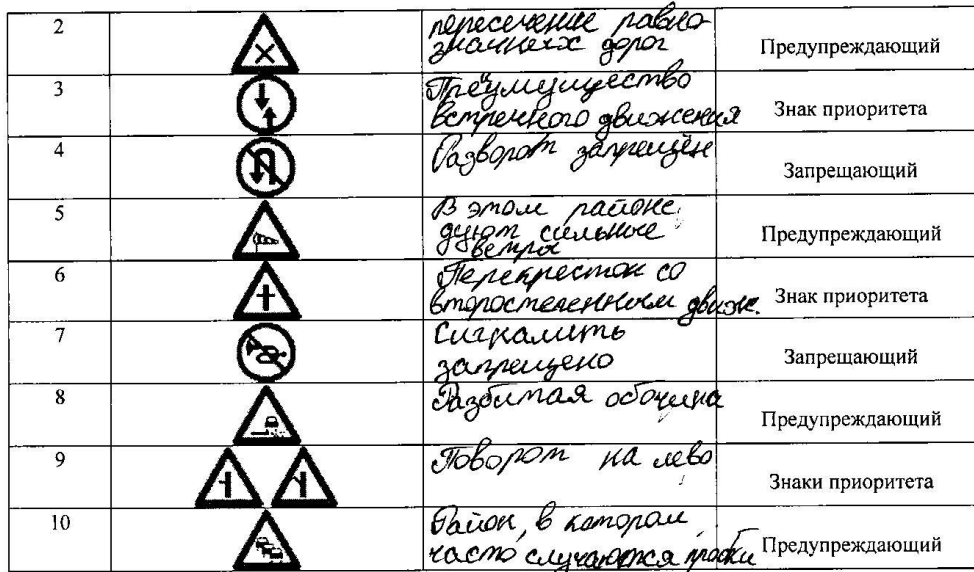 2
пересечение равно-
значных дорог
Предупреждающий
3
Преимущество
встречного движения
Знак приоритета
4
Разворот запрещён
Запрещающий
5
В этом районе
дуют сильные
ветра
Предупреждающий
6
Перекресток со
второстепенным движ.
Знак приоритета
7
Сигналить
запрещено
Запрещающий
8
Разбитая обочина
Предупреждающий
9
Поворот на лево
Знаки приоритета
10
Район, в котором
часто случаются пробки
Предупреждающий